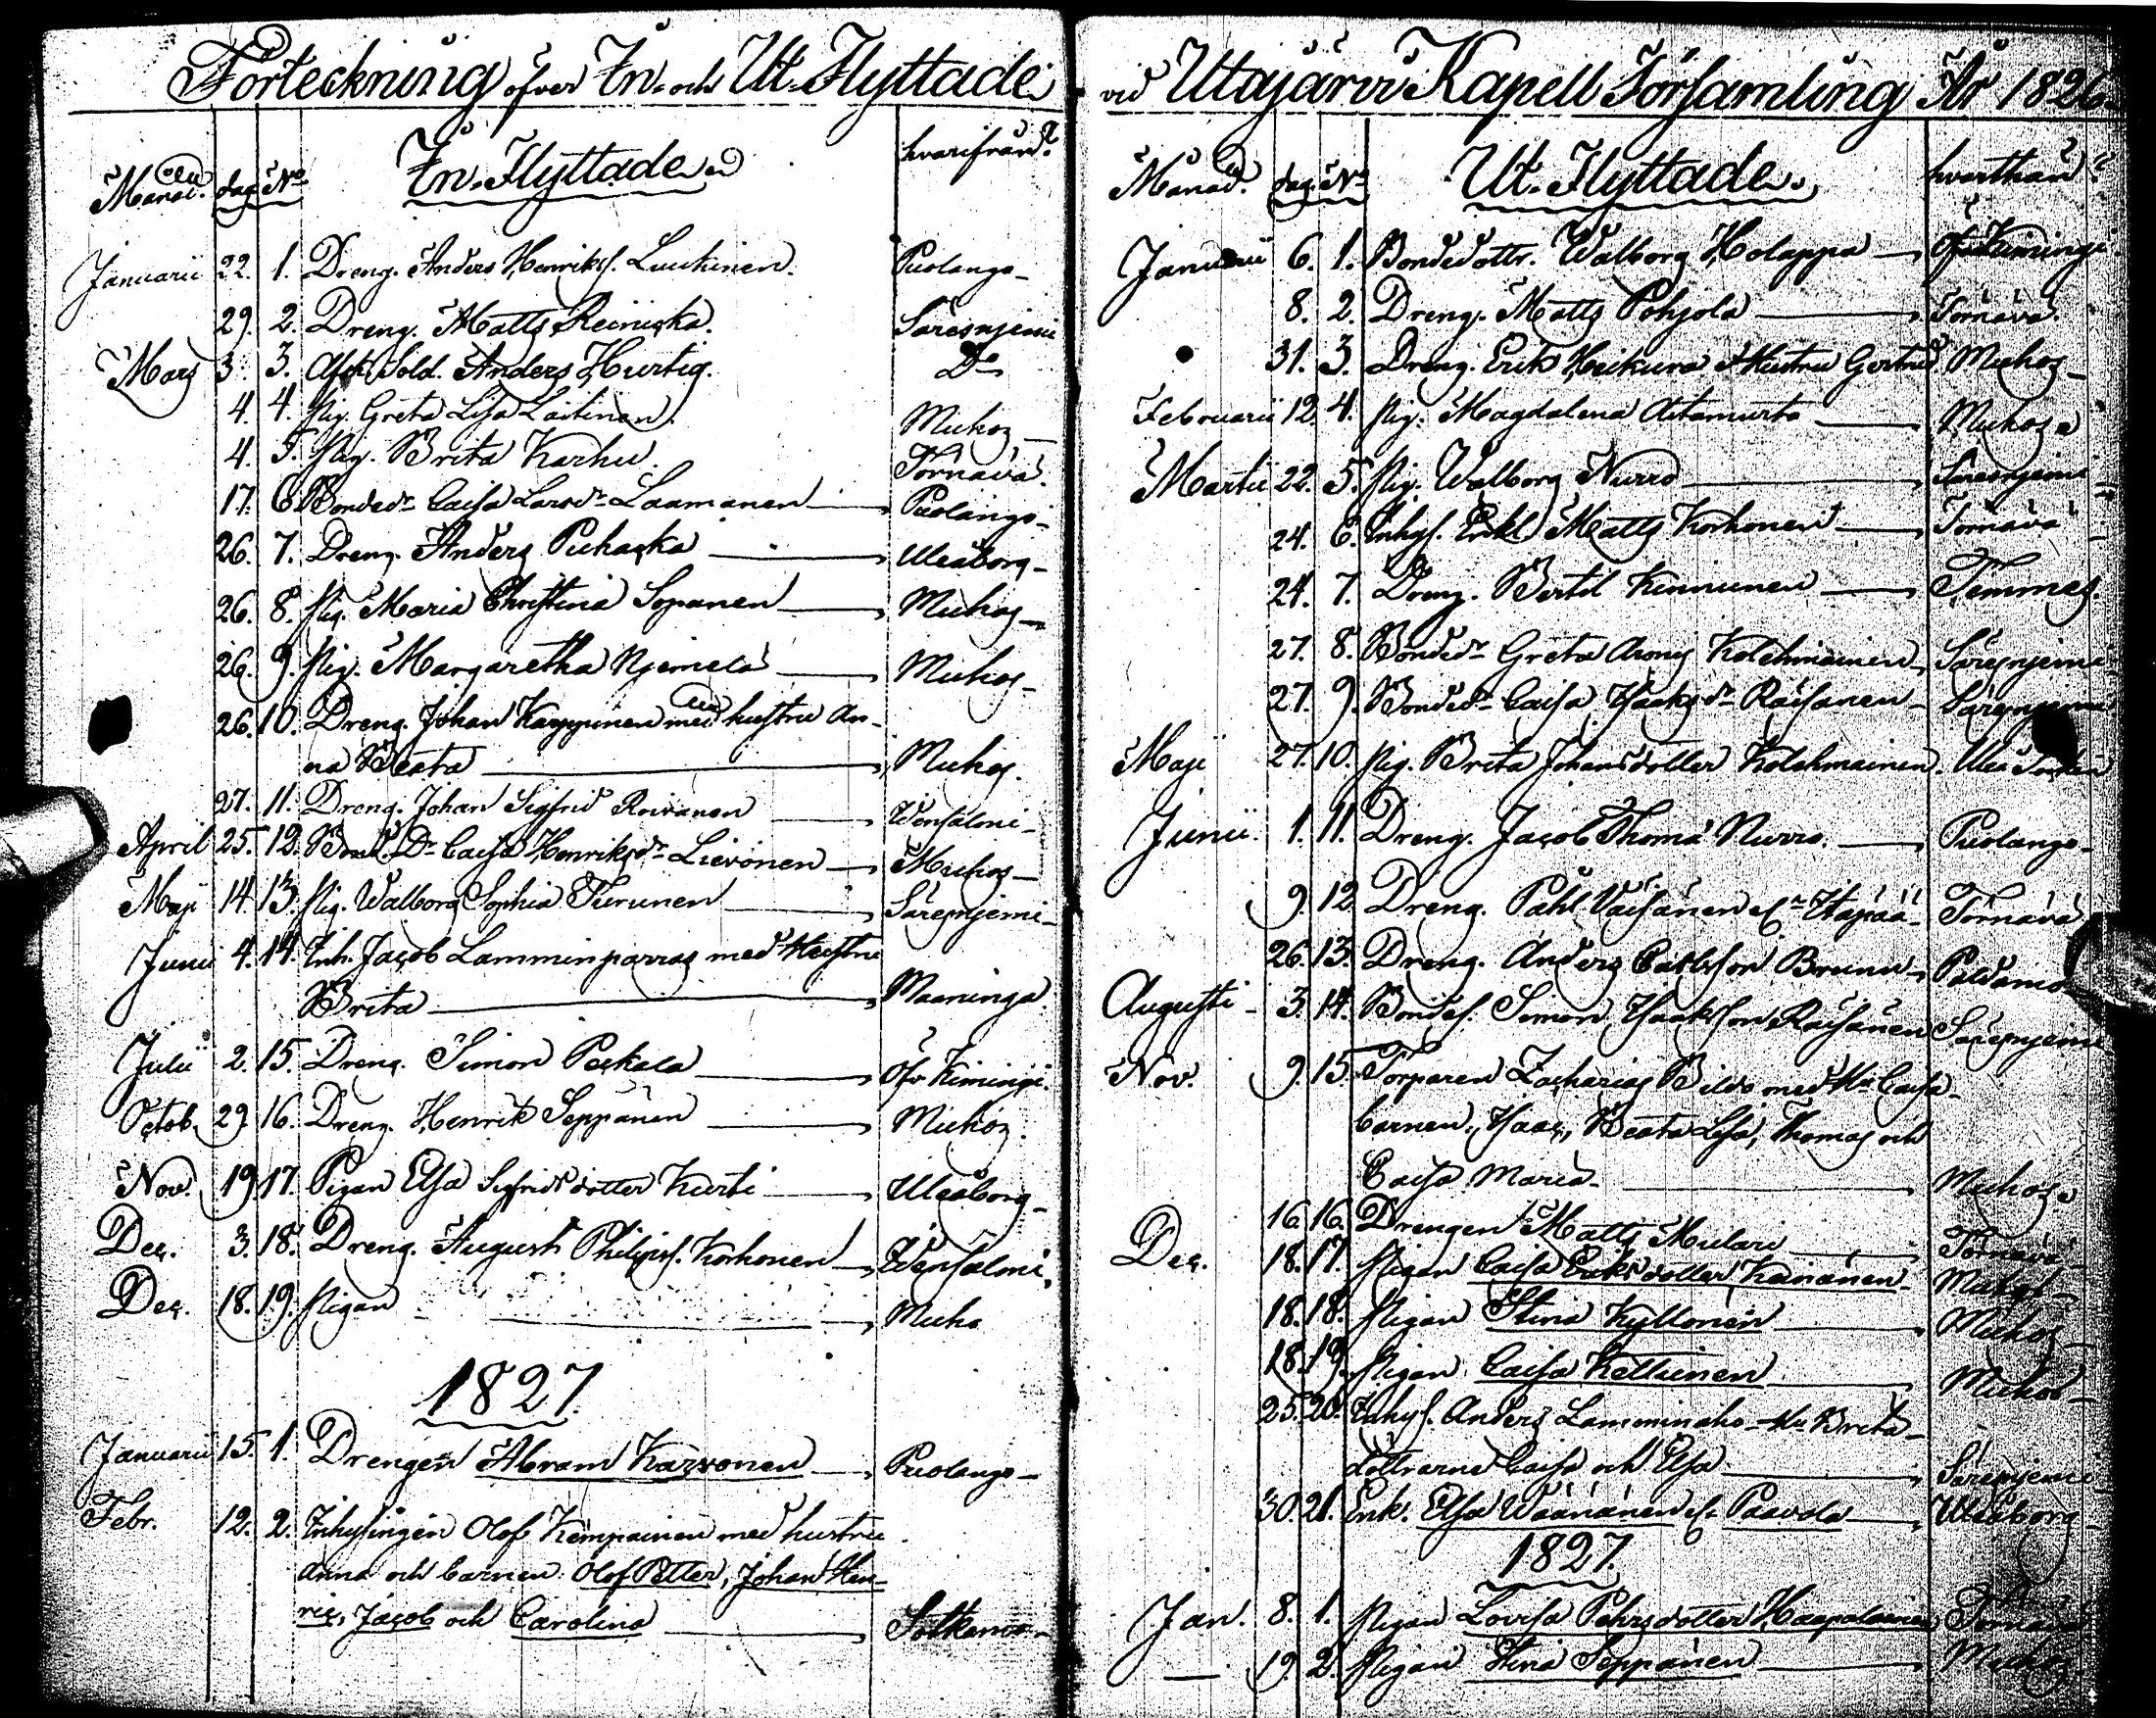 Förteckning öfver In- och Ut-Flyttade
Månad. dag. No. In-Flyttade hvarifrån?
Januarii 22. 1. Dreng. Anders Henrikss. Luukinen. Puolango
29. 2. Dreng. Matts Reiniska. Säresnjemi
Mars 3. 3. Afsk. Sold. Anders Hurtig. Do
4. 4. Pig. Greta Lisa Laitinen. Muhos
4. 5. Pig. Brita Karhu. Törnävä.
17. 6. Bonded:r Caisa Larsd:r Laamanen Puolango
26. 7. Dreng. Anders Puhakka Uleåborg
26. 8. Pig. Maria Christina Sopanen Muhos
26. 9. Pig. Margaretha Njemelä Muhos
26. 10. Dreng. Johan Karppinen med hustru An-
na Beata Muhos.
27. 11. Dreng. Johan Sigfrid Roivanen Idensalmi
April 25. 12. Bond. D:r Caisa Henriksd:r Lievonen Muhos
Maji 14. 13. Pig. Walborg Sophia Turunen Säresnjemi
Junii 4. 14. Inh. Jacob Lamminparras med Hustru
Brita Maaninga.
Julii 2. 15. Dreng. Simon Peckala Öfv Kiminge.
Octob. 29. 16. Dreng. Henrik Seppänen Muhos.
Nov. 19. 17. Pigan Elsa Sigfridsdotter Kurti Uleåborg
Dec. 3. 18. Dreng. August Philipss. Korhonen Idensalmi.
Dec. 18. 19. Pigan Muho
1827.
Januarii 15. 1. Drengen Abram Karvonen Puolango
Febr. 12. 2. Inhysingen Olof Kemppainen med hustru
Anna och barnen: Olof Petter, Johan Hen-
ric, Jacob och Carolina Sotkamo
vid Utajärvi Kapell Församling År 1826.
Månad. dag. No. Ut-Flyttade. hvarthän?
Januarii 6. 1. Bondedottr. Walborg Holappa Öfv Kiminge
8. 2. Dreng. Matts Pohjola Törnävä.
31. 3. Dreng. Erik Heikura & Hustru Gertrud Muhos
Februarii 12. 4. Pig. Magdalena Aitamurto Muhos
Martii 22. 5. Pig. Walborg Nurro Säresnjemi
24. 6. Inhys. Enkl. Matts Korhonen Törnävä
24. 7. Dreng. Bertil Kinnunen Temmes.
27. 8. Bonded:r Greta Arons Kolehmainen Säresnjemi
27. 9. Bonded:r Caisa Isaksd:r Räisänen Säresnjemi
Maji 27. 10. Pig. Brita Johansdotter Kolehmainen. Uleå Socken
Junii. 1. 11. Dreng. Jacob Thoma Nurro. Puolango
9. 12. Dreng. Påhl Väisänen el:r Itapää Törnävä
26. 13. Dreng. Anders Carlsson Bruun Paldamo
Augusti 3. 14. Bondes. Simon Isaksson Räisänen Säresnjemi
Nov. 9. 15. Torparen Zacharias Bildo med Hu Caisa
barnen: Isaac, Beata Lisa, Thomas och
Caisa Maria Muhos
16. 16. Drengen Matts Mulari Törnävä
Dec. 18. 17. Pigan Caisa Eriksdotter Kainänen. Muhos
18. 18. Pigan Stina Kyllönen Muhos
18. 19. Pigan Caisa Keltunen Muhos
25. 20. Inhys. Anders Lamminaho Hu Brita
döttrarna Caisa och Elsa Säresnjemi
30. 21. Enk. Elsa Wäänänen el. Paavola Uleåborg
1827.
Jan. 8. 1. Pigan Lovisa Pehrsdotter Haapalainen Törnävä
19. 2. Pigan Stina Seppänen Muhos